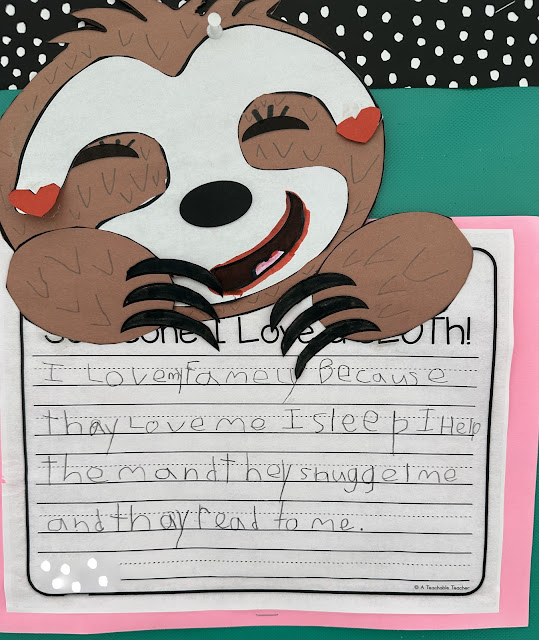 Someone I Love a SLOTh!
I Love my Famely Because
thay Love me I sleep I Help
them and they snuggel me
and thay read to me.
© A Teachable Teacher